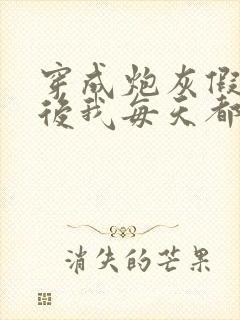 穿成炮灰假
後我每天都
消失的芒果